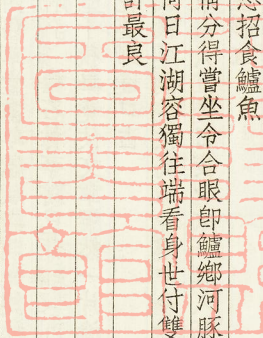 招食鱸魚
分得嘗坐令合眼卽鱸鄕河豚
日江湖容獨往端看身世付雙
最良